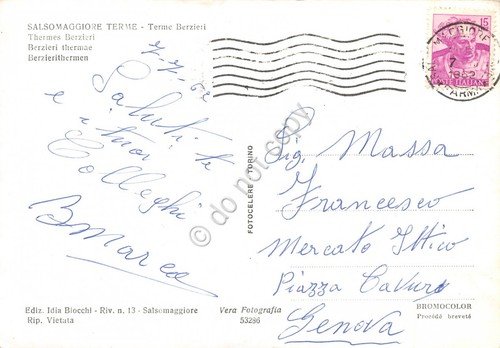 SALSOMAGGIORE TERME - Terme Berzieri
Thermes Berzieri
Berzieri thermae
Berzierithermen
7-7-62
Saluti te
e i tuoi
Colleghi
B Marco
Ediz. Idia Biocchi - Riv. n. 13 - Salsomaggiore
Rip. Vietata
FOTOCELERE TORINO
Vera Fotografia
53286
15
1962
Sig. Massa
Francesco
Mercato Ittico
Piazza Cavour
Genova
BROMOCOLOR
Procédé breveté
© do not copy